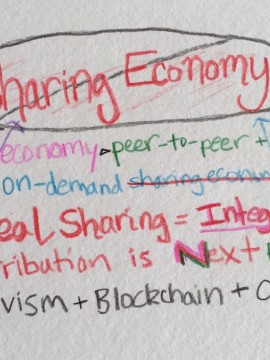 haring Economy
economy > peer-to-peer +
on-demand sharing econom
eal Sharing = Integ
ribution is Next
vism + Blockchain +